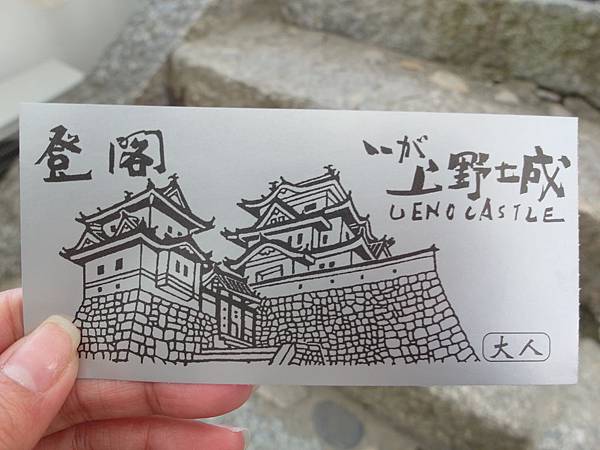 登閣
いが
上野城
UENO CASTLE
大人